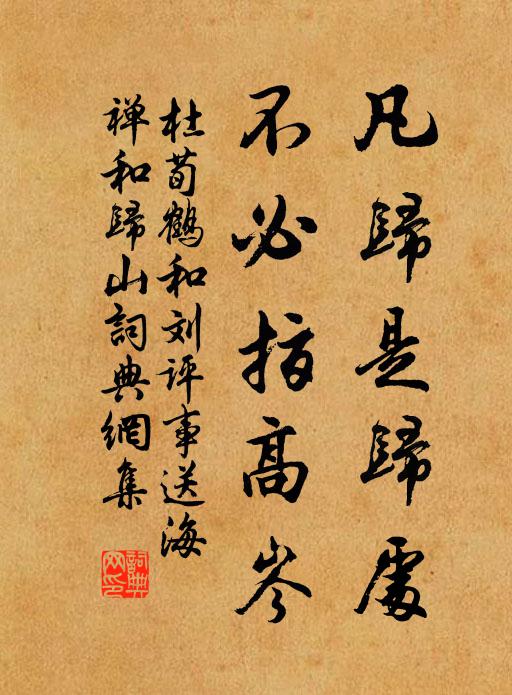 凡歸是歸處
不必指高岑
杜荀鶴和刘评事送海
禅和歸山詞典網集
詞典网印